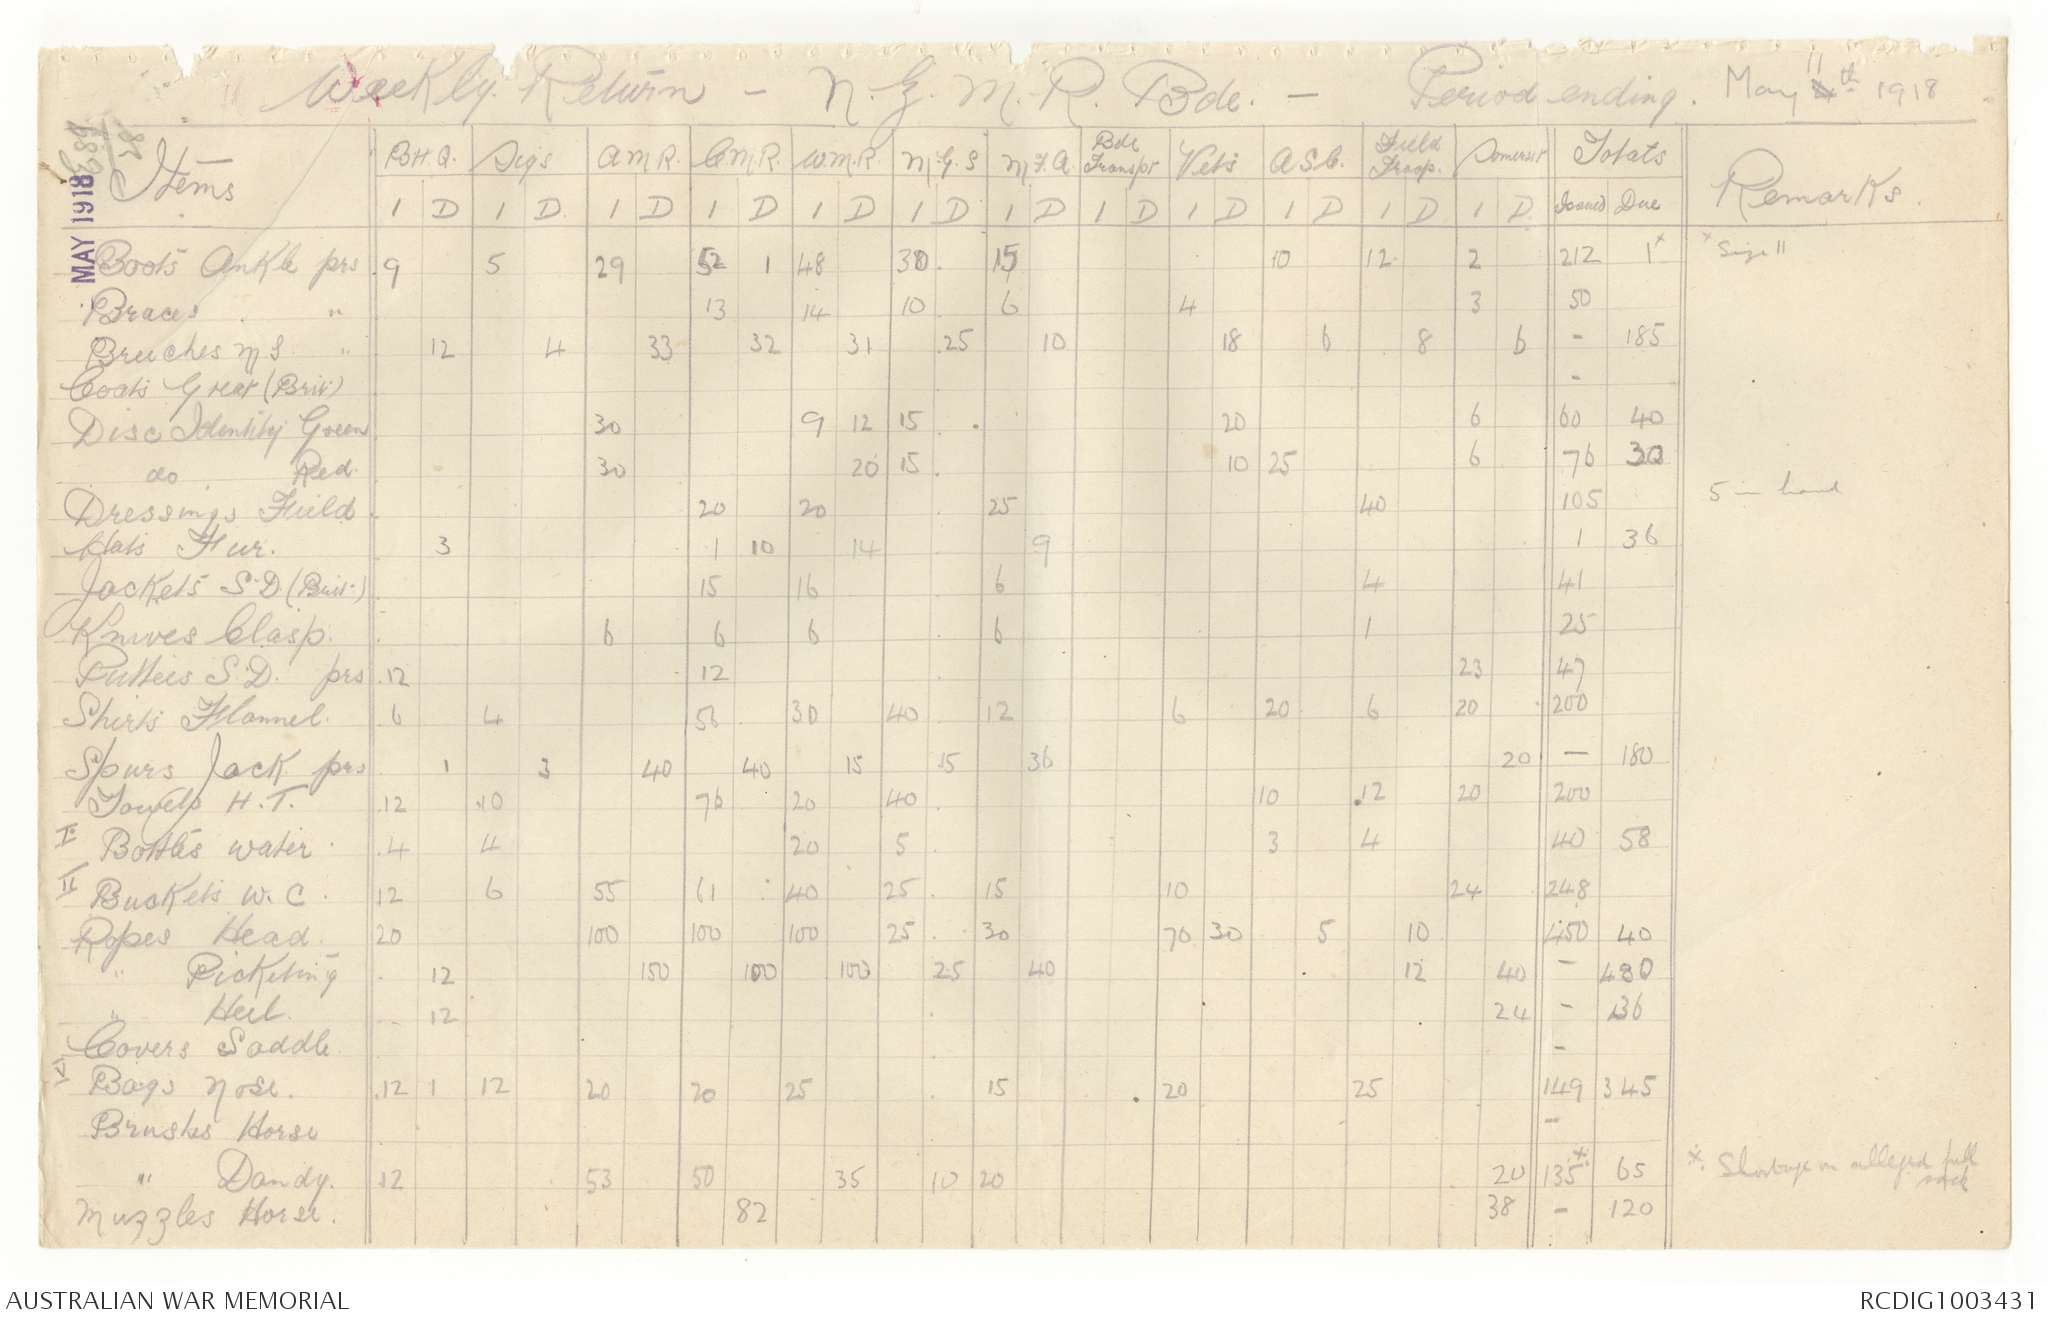 Weekly Return - N.Z.M.R. Bde. - Period ending. May 11th 1918
MAY 1918
Items B.H.Q. Sigs A.M.R. C.M.R. W.M.R. M.G.S M.F.A. Bde Transpt Vet's A.S.C. Field Troop. Somerset Totals Remarks.
I D I D I D I D I D I D I D I D I D I D I D I D Issued Due
Boots Ankle prs 9 5 29 52 1 48 30 15 10 12 2 212 1* * Size 11
Braces " 13 14 10 6 4 3 50
Breeches M S " 12 4 33 32 31 25 10 18 6 8 6 - 185
Coats Great (Brit.) -
Disc Identity Green 30 9 12 15 20 6 60 40
do Red. 30 20 15 10 25 6 76 30
Dressings Field 20 20 25 40 105 5 in hand
Hats Fur. 3 1 10 14 9 1 36
Jackets S.D (Brit.) 15 16 6 4 41
Knives Clasp. 6 6 6 6 1 25
Putties S.D. prs 12 12 23 47
Shirts Flannel. 6 4 56 30 40 12 6 20 6 20 200
Spurs Jack prs 1 3 40 40 15 15 36 20 - 180
Towels H.T. 12 10 76 20 40 10 12 20 200
I Bottles water 4 4 20 5 3 4 40 58
II Buckets W.C. 12 6 55 61 40 25 15 10 24 248
Ropes Head. 20 100 100 100 25 30 70 30 5 10 450 40
" Picketing 12 150 100 100 25 40 12 40 - 480
" Heel. 12 24 - 36
Covers Saddle. -
Bags Nose. 12 1 12 20 20 25 15 20 25 149 345
Brushes Horse -
" Dandy. 12 53 50 35 10 20 20 135* 65 * Shortage on alleged full sack
Muzzles Horse. 82 38 - 120
AUSTRALIAN WAR MEMORIAL RCDIG1003431